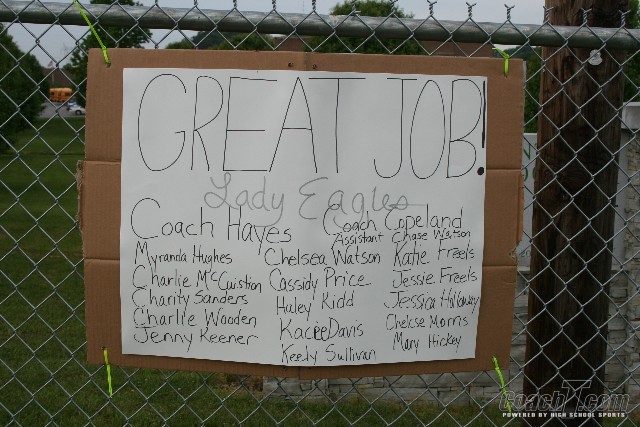 GREAT JOB!
Lady Eagles
Coach Hayes
Coach Copeland
Assistant Chase Watson
Myranda Hughes
Charlie McCuistion
Charity Sanders
Charlie Wooden
Jenny Keener
Chelsea Watson
Cassidy Price
Haley Kidd
Kacee Davis
Keely Sullivan
Katie Freels
Jessie Freels
Jessica Holloway
Chelcse Morris
Mary Hickey
CoachT.com
POWERED BY HIGH SCHOOL SPORTS